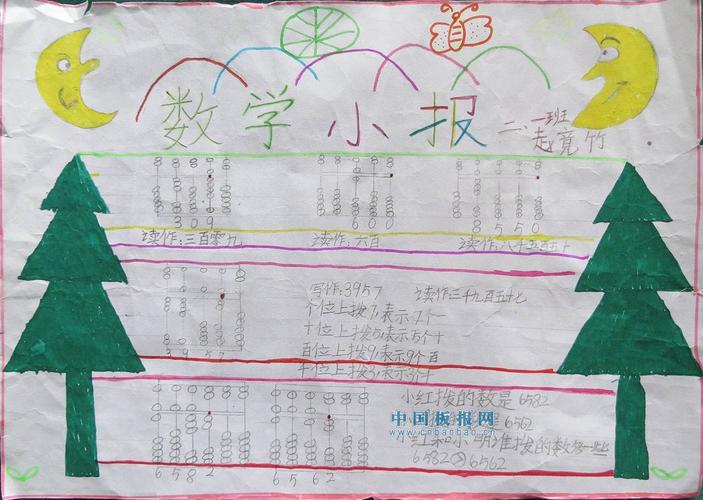 数学小报
二、一班
赵竟竹
309
600
8550
读作:三百零九
读作:六百
读作:八千五百五十
写作:3957 读作三千九百五十七
个位上拨7,表示7个一
十位上拨5,表示5个十
百位上拨9,表示9个百
千位上拨3,表示3个十
3957
小红拨的数是6582
中国板报网
www.cnbanbao.cn
是6562
小红和小明谁拨的数多一些
6582>6562
6582
6562